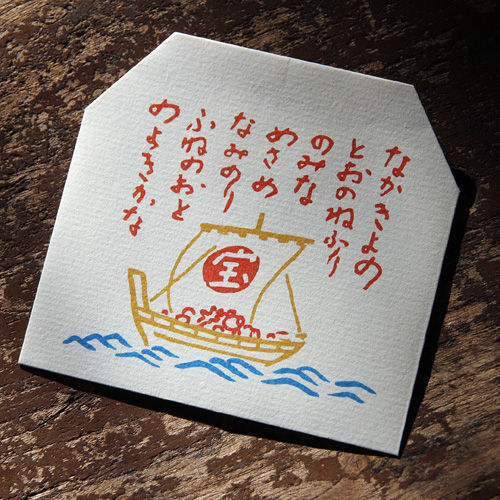 なかきよの
とおのねふり
のみな
めさめ
なみのり
ふねのおと
のよきかな
宝